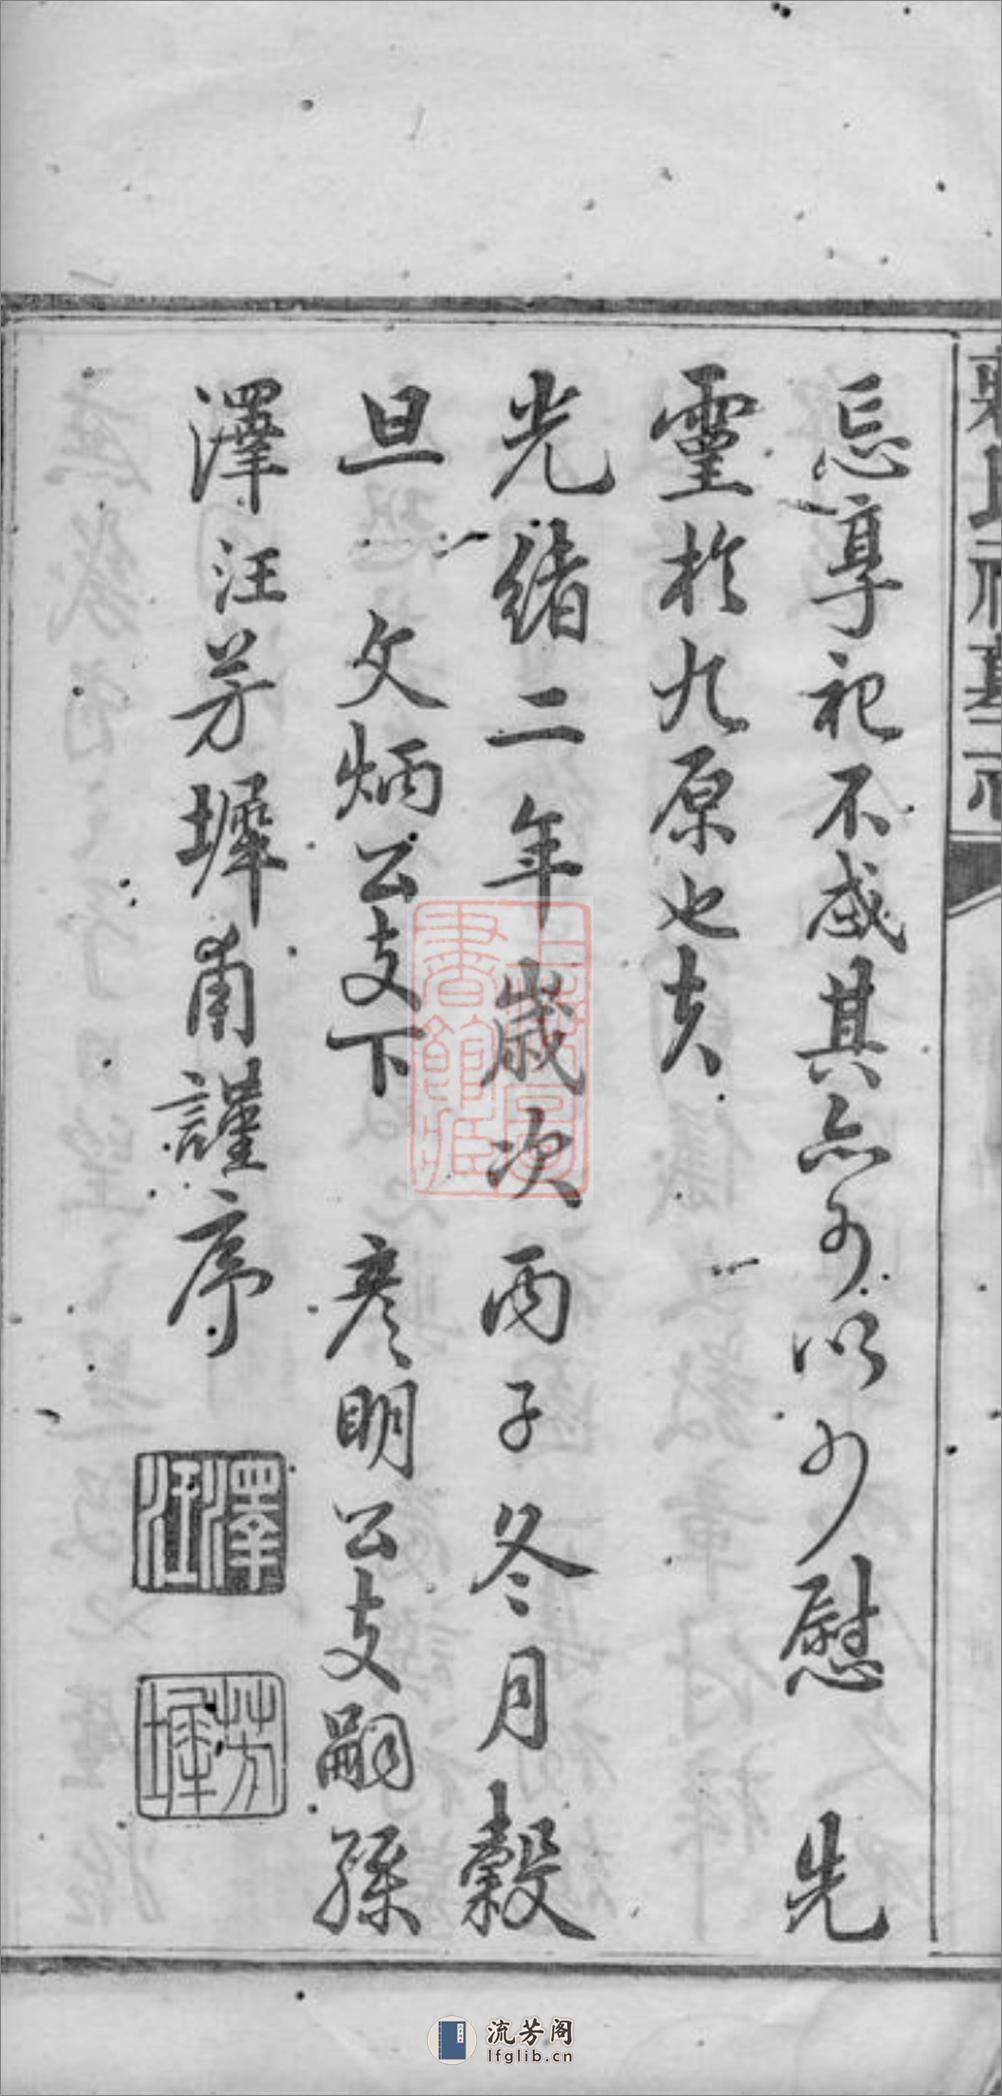 忘享祀不忒其亦可以少慰　先
靈於九原也夫
光緒二年歲次丙子冬月穀
旦　文炳公支下　彥明公支嗣孫
澤汪芳墀甫謹序
澤汪
芳墀
上海圖書館藏
流芳阁
lfglib.cn